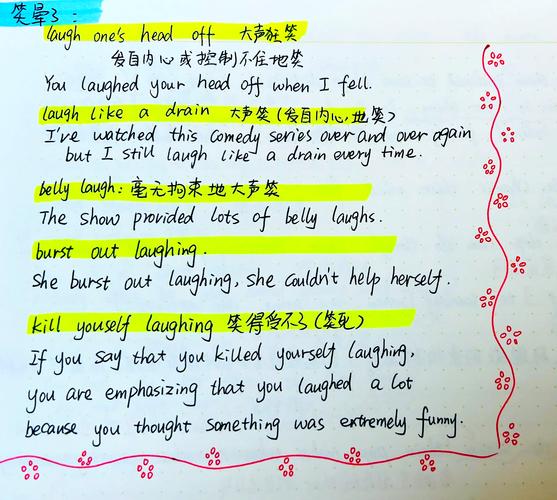 笑晕了:
laugh one's head off 大声狂笑
发自内心或控制不住地笑
You laughed your head off when I fell.
laugh like a drain 大声笑(发自内心地笑)
I've watched this comedy series over and over again
but I still laugh like a drain every time.
belly laugh: 毫无拘束地大声笑
The show provided lots of belly laughs.
burst out laughing.
She burst out laughing, she couldn't help herself.
kill youself laughing 笑得受不了(笑死)
If you say that you killed yourself laughing,
you are emphasizing that you laughed a lot
because you thought something was extremely funny.